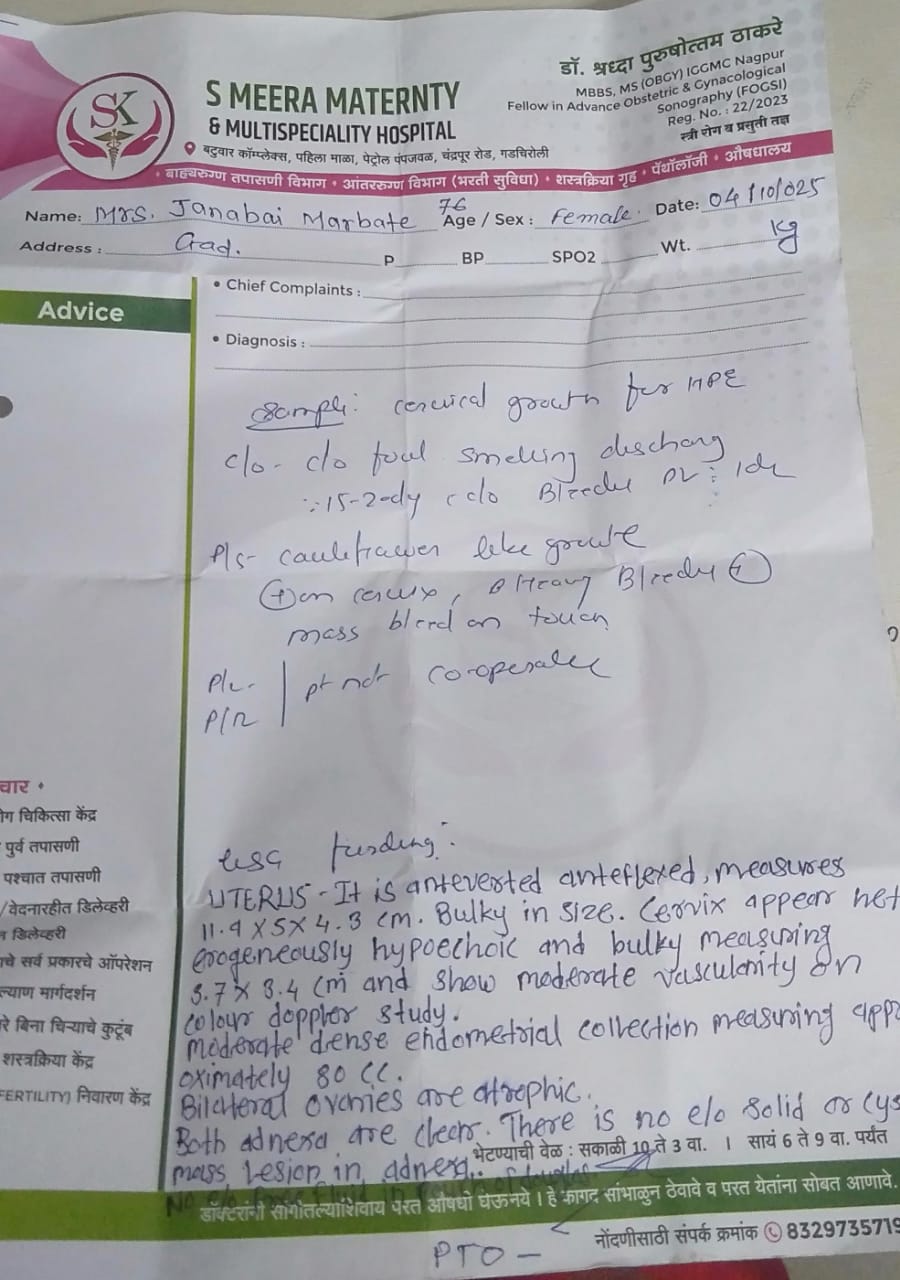 SK
S MEERA MATERNTY
& MULTISPECIALITY HOSPITAL
बटुवार कॉम्प्लेक्स, पहिला माळा, पेट्रोल पंपजवळ, चंद्रपूर रोड, गडचिरोली
डॉ. श्रध्दा पुरुषोत्तम ठाकरे
MBBS, MS (OBGY) IGGMC Nagpur
Fellow in Advance Obstetric & Gynacological
Sonography (FOGSI)
Reg. No. : 22/2023
स्त्री रोग व प्रसुती तज्ञ
• बाह्यरुग्ण तपासणी विभाग • आंतररुग्ण विभाग (भरती सुविधा) • शस्त्रक्रिया गृह • पॅथॉलॉजी • औषधालय
Name: Mrs. Janabai Marbate 76 Age / Sex : Female. Date: 04/10/025
Address : Gad. P BP SPO2 Wt. kg
Advice
• Chief Complaints :
• Diagnosis :
Sample: cervical growth for HPE
c/o - c/o foul smelling discharg
c/o Bleedy PV
P/s - cauliflower like growth
+ on cervix, Heavy Bleedy +
mass bleed on touch
P/v-
P/R pt not co-operate
USG finding:
UTERUS - It is anteverted anteflexed, measures
11.9 X 5 X 4.3 cm. Bulky in size. Cervix appear het
erogeneously hypoechoic and bulky measuring
3.7 X 3.4 cm and show moderate vascularity on
colour doppler study.
moderate dense endometrial collection measuring appr
oximately 80 CC.
Bilateral ovaries are atrophic.
Both adnexa are clear. There is no e/o solid or cys
mass lesion in adnexa.
No e/o free fluid in
चार •
ग चिकित्सा केंद्र
पुर्व तपासणी
पश्चात तपासणी
/वेदनारहीत डिलेव्हरी
डिलेव्हरी
चे सर्व प्रकारचे ऑपरेशन
ल्याण मार्गदर्शन
रे बिना चिऱ्याचे कुटूंब
शस्त्रक्रिया केंद्र
FERTILITY) निवारण केंद्र
भेटण्याची वेळ : सकाळी 10 ते 3 वा. । सायं 6 ते 9 वा. पर्यंत
डॉक्टरांनी सांगीतल्याशिवाय परत औषधी घेऊनये । हे कागद सांभाळुन ठेवावे व परत येतांना सोबत आणावे.
नोंदणीसाठी संपर्क क्रमांक 8329735719
PTO -